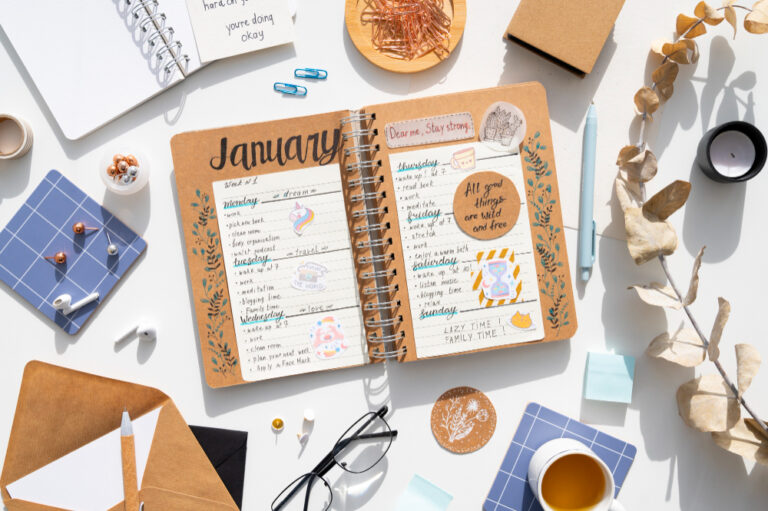 hard on y
you're doing
okay
January
Week №1
dream
Monday
• work
• pick new book
• clean room
• body organisation
travel
Tuesday
• wake up at 7
• work
• meditation
• blogging time
• Family time
love
Wednesday
• wake up at 7
• work
• clean room
• plan your next week
• Apply a Face Mask
Dear me, Stay strong!
Thursday
• wake up! at 7
• read book
• work
• meditate
Friday
• wake up! at 7
• stretch
• work
• enjoy a warm bath
Saturday
• wake up! at 10
• listen music
• blogging time
• relax
Sunday
LAZY TIME !
FAMILY TIME !
All good
things
are wild
and free